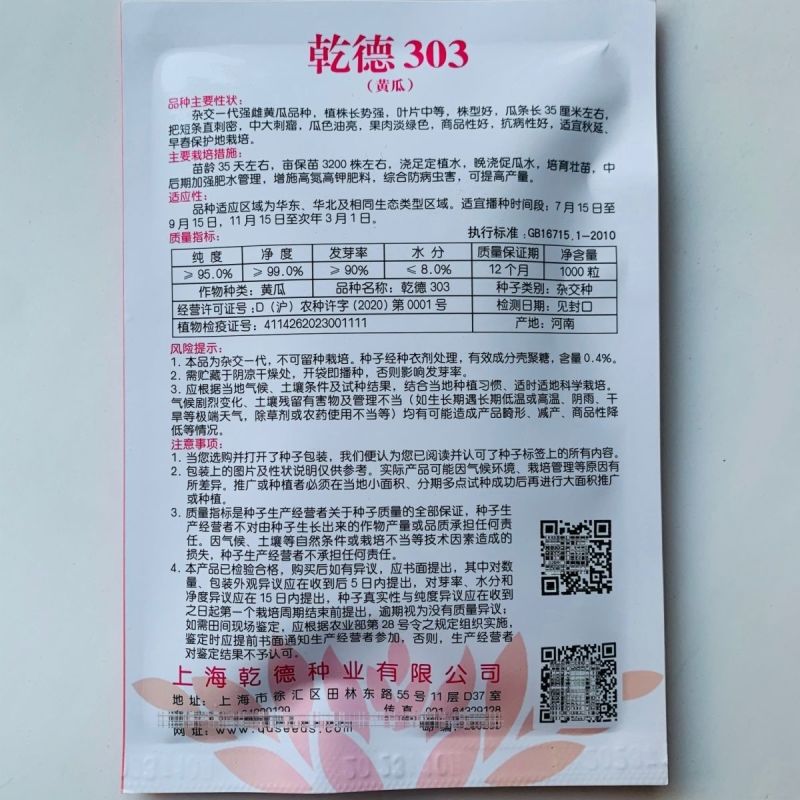 乾德 303
（黄瓜）
品种主要性状：
杂交一代强雌黄瓜品种，植株长势强，叶片中等，株型好，瓜条长 35 厘米左右，
把短条直刺密，中大刺瘤，瓜色油亮，果肉淡绿色，商品性好，抗病性好，适宜秋延、
早春保护地栽培。
主要栽培措施：
苗龄 35 天左右，亩保苗 3200 株左右，浇足定植水，晚浇促瓜水，培育壮苗，中
后期加强肥水管理，增施高氮高钾肥料，综合防病虫害，可提高产量。
适应性：
品种适应区域为华东、华北及相同生态类型区域。适宜播种时间段：7 月 15 日至
9 月 15 日，11 月 15 日至次年 3 月 1 日。
质量指标： 执行标准：GB16715.1-2010
纯 度 净 度 发芽率 水 分 质量保证期 净含量
≥ 95.0% ≥ 99.0% ≥ 90% ≤ 8.0% 12 个月 1000 粒
作物种类：黄瓜 品种名称：乾德 303 种子类别：杂交种
经营许可证号：D（沪）农种许字 (2020) 第 0001 号 检测日期：见封口
植物检疫证号：4114262023001111 产地：河南
风险提示：
1. 本品为杂交一代，不可留种栽培。种子经种衣剂处理，有效成分壳聚糖，含量 0.4%。
2. 需贮藏于阴凉干燥处，开袋即播种，否则影响发芽率。
3. 应根据当地气候、土壤条件及试种结果，结合当地种植习惯、适时适地科学栽培。
气候剧烈变化、土壤残留有害物及管理不当（如生长期遇长期低温或高温、阴雨、干
旱等极端天气，除草剂或农药使用不当等）均有可能造成产品畸形、减产、商品性降
低等情况。
注意事项：
1. 当您选购并打开了种子包装，我们便认为您已阅读并认可了种子标签上的所有内容。
2. 包装上的图片及性状说明仅供参考。实际产品可能因气候环境、栽培管理等原因有
所差异。推广或种植者必须在当地小面积、分期多点试种成功后再进行大面积推广
或种植。
3. 质量指标是种子生产经营者关于种子质量的全部保证，种子生
产经营者不对由种子生长出来的作物产量或品质承担任何责
任。因气候、土壤等自然条件或栽培不当等技术因素造成的
损失，种子生产经营者不承担任何责任。
4. 本产品已检验合格，购买后如有异议，应书面提出，其中对数
量、包装外观异议应在收到后 5 日内提出，对芽率、水分和
净度异议应在 15 日内提出，种子真实性与纯度异议应在收到
之日起第一个栽培周期结束前提出，逾期视为没有质量异议；
如需田间现场鉴定，应根据农业部第 28 号令之规定组织实施，
鉴定时应提前书面通知生产经营者参加，否则，生产经营者
对鉴定结果不予认可。
上海乾德种业有限公司
地址：上海市徐汇区田林东路 55 号 11 层 D37 室
传真：021-64329128
网址：www.qdseeds.com